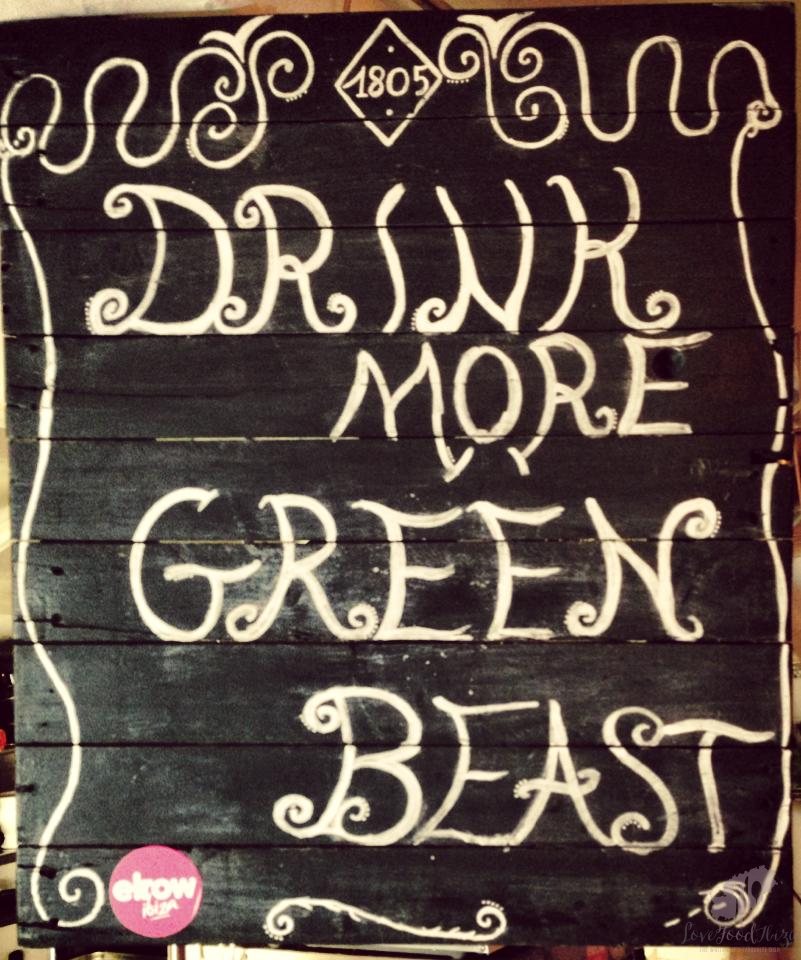 1805
DRINK
MORE
GREEN
BEAST
elrow
ibiza
LoveFoodIbiza